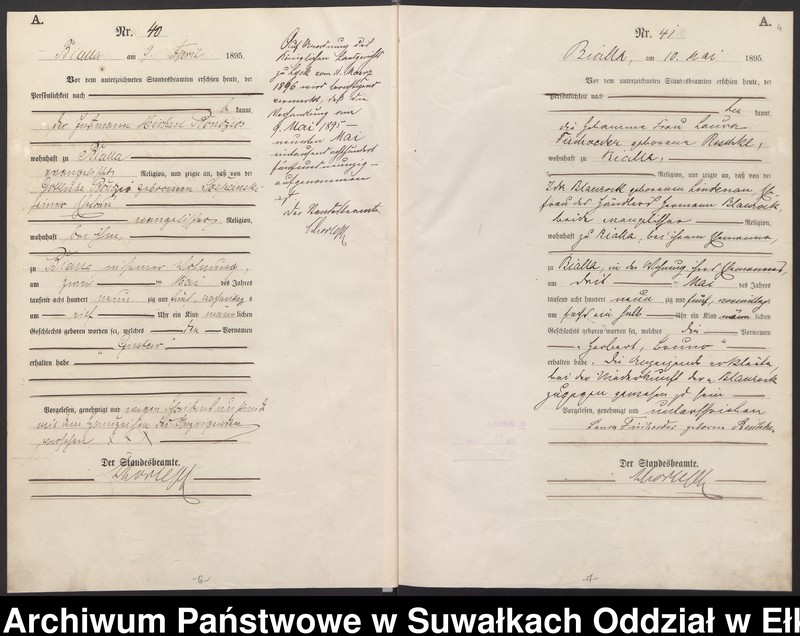 A.
Nr. 40
Bialla am 9. April 1895.
Vor dem unterzeichneten Standesbeamten erschien heute, der
Persönlichkeit nach
be kannt,
der Instmann Michael
wohnhaft zu Bialla
evangelischer Religion, und zeigte an, daß von der
geborenen
seiner Ehefrau
evangelischer Religion,
wohnhaft bei ihm,
zu Bialla in seiner Wohnung,
am zwei ten Mai des Jahres
tausend acht hundert neun zig und fünf, nachmittags
um Uhr ein Kind männlichen
Geschlechts geboren worden sei, welches den Vornamen
"Gustav"
erhalten habe
Vorgelesen, genehmigt und wegen
mit
versehen XXX
Der Standesbeamte.
Auf Anordnung des
Königlichen Landgerichts
zu Lyck vom März
1896 wird berichtigend
vermerkt, daß die
Verhandlung am
9. Mai 1895 –
neunten Mai
eintausendachthundert
fünfundneunzig –
aufgenommen
ist
Der Standesbeamte
A.
Nr. 41
Bialla, am 10. Mai 1895.
Vor dem unterzeichneten Standesbeamten erschien heute, der
Persönlichkeit nach
be kannt,
die Hebamme Frau Laura
geborene
wohnhaft zu Bialla,
Religion, und zeigte an, daß von der
Ida Blaurock geborenen Lindenau, Ehe-
frau des Händlers Hermann Blaurock,
beide evangelischer Religion,
wohnhaft zu Bialla, bei ihrem Ehemanne,
zu Bialla, in der Wohnung ihres Ehemannes,
am drit ten Mai des Jahres
tausend acht hundert neun zig und fünf, vormittags
um ein halb Uhr ein Kind männlichen
Geschlechts geboren worden sei, welches die Vornamen
"Herbert, Bruno"
erhalten habe. Die Anzeigende erklärte,
bei der Niederkunft der Blaurock
zugegen gewesen zu sein
Vorgelesen, genehmigt und unterschrieben
Laura geborene
Der Standesbeamte.
Archiwum Państwowe w Suwałkach Oddział w Ełk